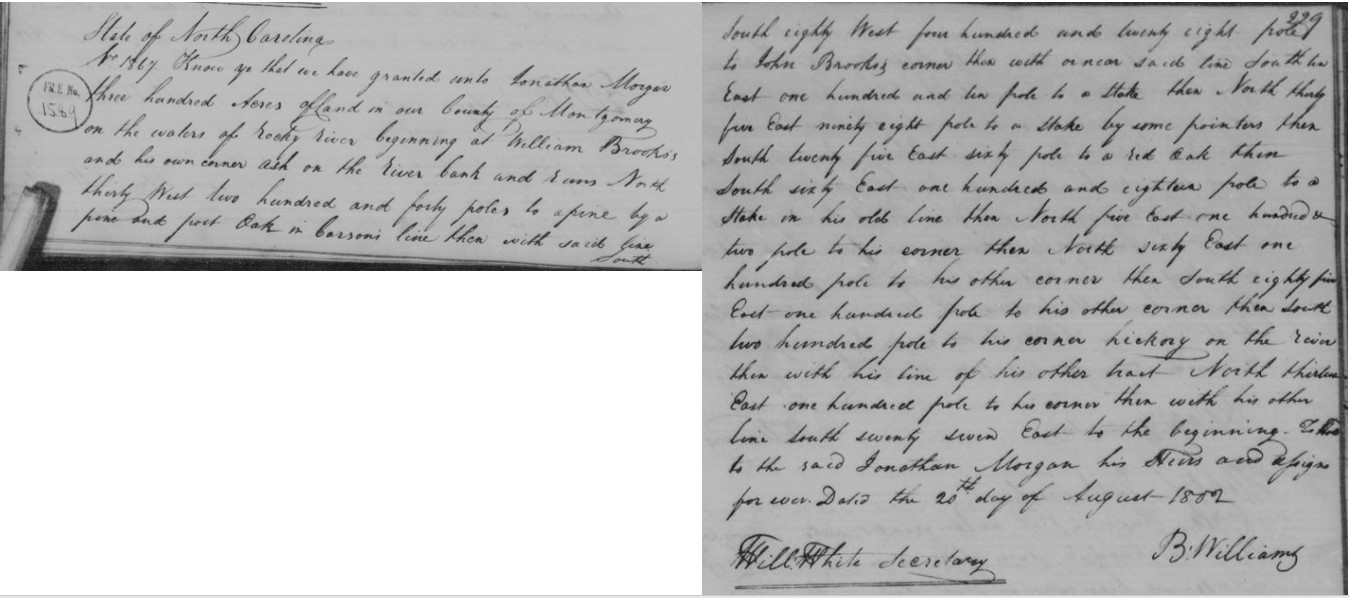 State of North Carolina
No 1867. Know ye that we have granted unto Jonathan Morgan
three hundred Acres of land in our County of Montgomery
on the waters of rocky river beginning at William Brooks's
and his own corner ash on the river bank and runs North
thirty West two hundred and forty poles to a pine by a
pine and post Oak in Carson's line then with said line
South
FILE No.
1589
229
South eighty West four hundred and twenty eight pole
to John Brooks's corner then with or near said line South ten
East one hundred and ten pole to a Stake then North thirty
five East ninety eight pole to a Stake by some pointers then
South twenty five East sixty pole to a red Oak then
South sixty East one hundred and eighteen pole to a
Stake in his old line then North five East one hundred &
two pole to his corner then North sixty East one
hundred pole to his other corner then South eighty five
East one hundred pole to his other corner then South
two hundred pole to his corner hickory on the river
then with his line of his other tract North thirteen
East one hundred pole to his corner then with his other
line South seventy seven East to the beginning. To
to the said Jonathan Morgan his Heirs and assigns
for ever. Dated the 20th day of August 1802
Will. White Secretary
B. Williams